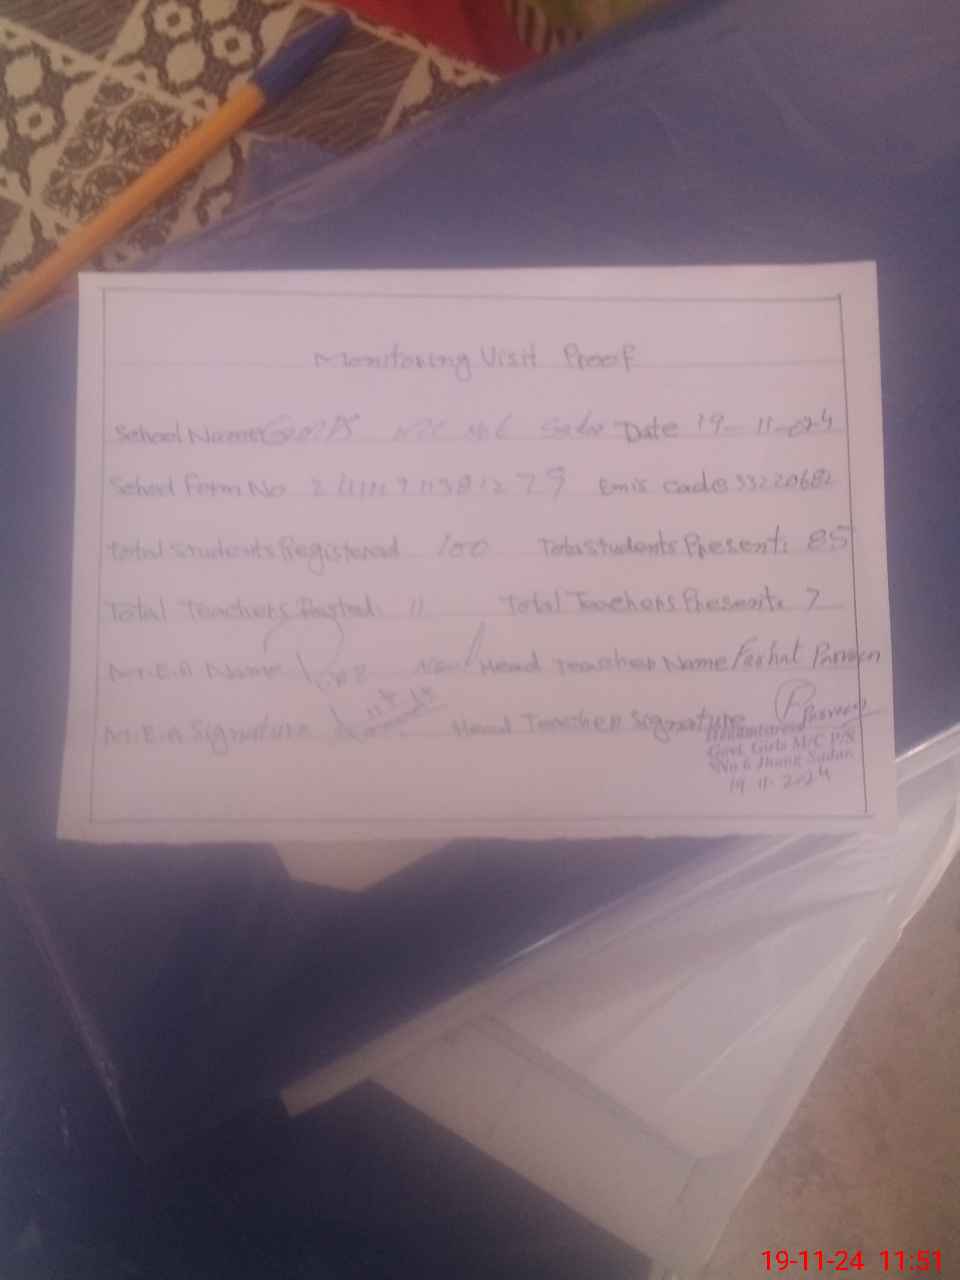 Monitoring Visit Proof
School Name Date 19-11-024
School Form No Emis Code 33220682
Total Students Registered 100 Total Students Present: 85
Total Teachers Posted: 11 Total Teachers Present: 7
M.E.A Name Head Teacher Name Farhat Parveen
M.E.A Signature Head Teacher Signature Parveen
Headmistress
Govt. Girls M/C P/S
No 6 Jhang Sadar
19-11-2024
19-11-24 11:51